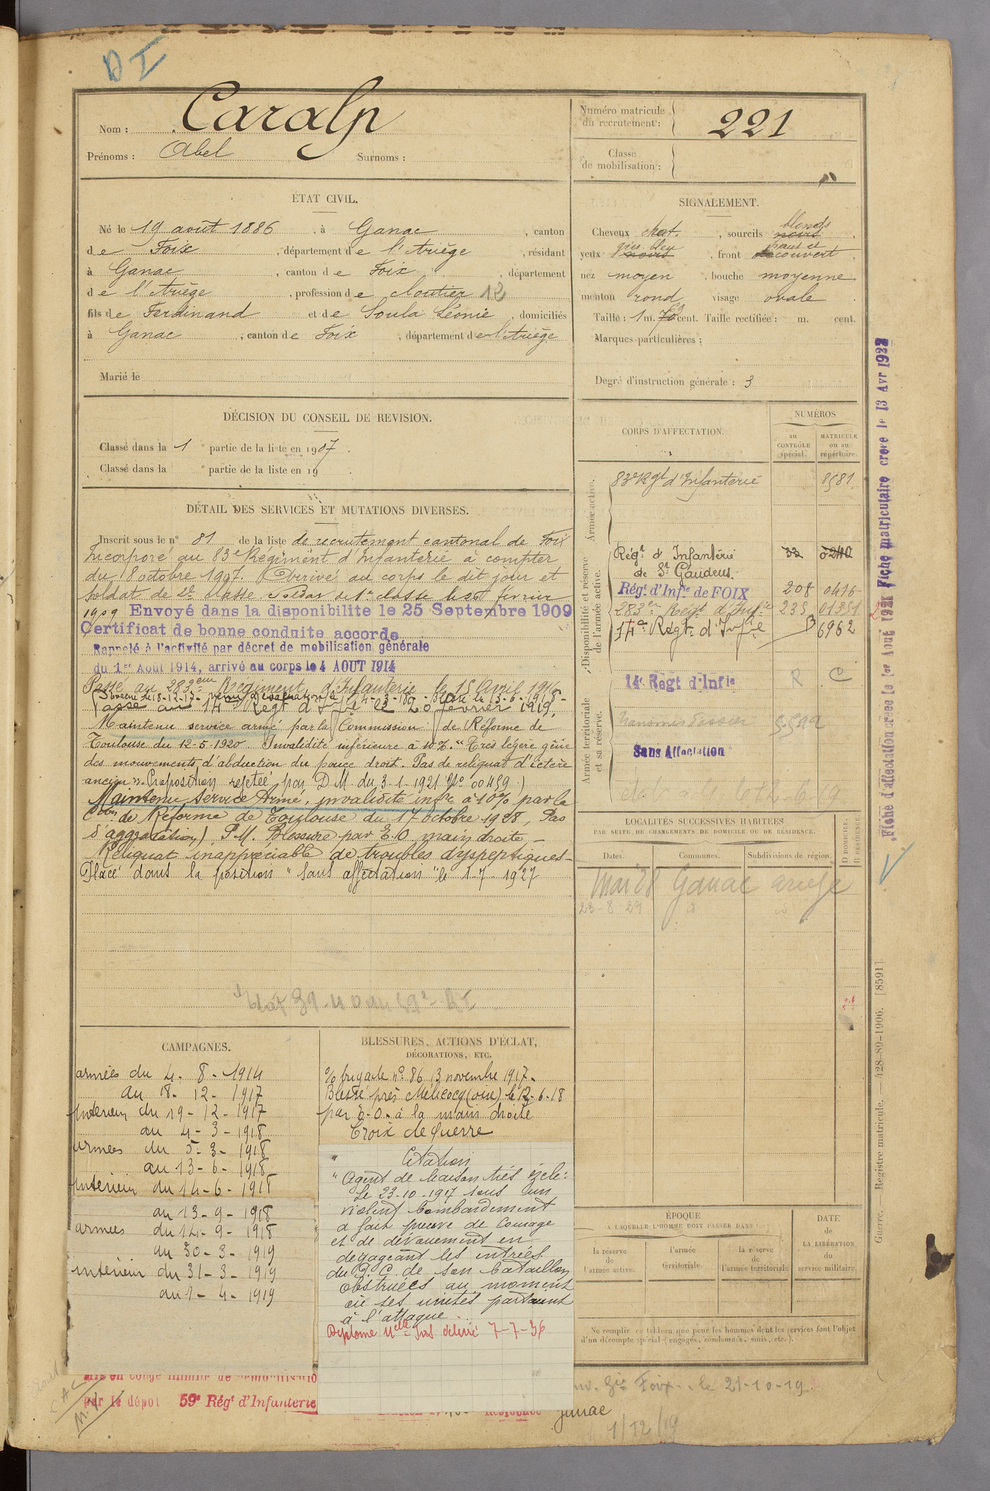 D I
Nom : Caralp
Prénoms : Abel Surnoms :
Numéro matricule du recrutement : 221
Classe de mobilisation :
ÉTAT CIVIL.
Né le 19 août 1886 , à Ganac , canton
de Foix , département de l'Ariège , résidant
à Ganac , canton de Foix , département
de l'Ariège , profession de cloutier 12
fils de Ferdinand et de Soula Léonie , domiciliés
à Ganac , canton de Foix , département de l'Ariège
Marié le
SIGNALEMENT.
Cheveux chat , sourcils noirs blonds
yeux noirs gris bleu , front découvert haut et
nez moyen , bouche moyenne
menton rond visage ovale
Taille : 1 m. cent. Taille rectifiée : m. cent.
Marques particulières :
Degré d'instruction générale : 3
DÉCISION DU CONSEIL DE REVISION.
Classé dans la 1 e partie de la liste en 1907 .
Classé dans la e partie de la liste en 19
DÉTAIL DES SERVICES ET MUTATIONS DIVERSES.
Inscrit sous le n° 81 de la liste de recrutement cantonal de Foix
Incorporé au 83e Régiment d'Infanterie à compter
du 8 octobre 1907. Arrivé au corps le dit jour et
soldat de 2e classe Soldat de 1e classe le 21 février
1909 Envoyé dans la disponibilite le 25 Septembre 1909
Certificat de bonne conduite accordé
Rappelé à l'activité par décret de mobilisation générale
du 1er Aout 1914, arrivé au corps le 4 AOUT 1914
Passé au 283eme Régiment d'Infanterie le 15 Avril 1916
Passé au 14e Régt d'Inf. le 20 février 1919.
Maintenu service armé par la Commission de Réforme de
Toulouse du 12-5-1920. Invalidité inférieure à 10%. "Très légère gêne
des mouvements d'abduction du pouce droit. Pas de reliquat d'ictère
ancien". Proposition rejetée par D.M. du 3.1.1921 No 00459.)
Maintenu Service Armé, invalidité infre à 10% par la
Con de Réforme de Toulouse du 17 octobre 1928, Pas
d'aggravation). P.M. Blessure par E.O. main droite
Reliquat inappréciable de troubles dyspeptiques
Placé dans la position "sans affectation" le 1-7-1927
CORPS D'AFFECTATION.
NUMÉROS
AU CONTRÔLE spécial.
MATRICULE OU AU répertoire.
Armée active.
83e Rgt d'Infanterie 8581
Disponibilité et réserve de l'armée active.
Régt d'Infanterie de St Gaudens.
Régt d'Infie de FOIX 208 0416
283eme Regt d'Infie 233 01351
14e Régt. d'Infie 6962
Armée territoriale et sa réserve.
14e Regt d'Infie R C
Sans Affectation
LOCALITÉS SUCCESSIVES HABITÉES
PAR SUITE DE CHANGEMENTS DE DOMICILE OU DE RÉSIDENCE.
Dates. Communes. Subdivisions de région. D DOMICILE. R RÉSIDENCE.
Mai 28 Ganac Ariège
23-8-29
Fiche d'affectation créée le 1er Aout 1921 Fiche matriculaire créée le 13 Avr 1928
CAMPAGNES.
armées du 4 - 8 - 1914
au 18 - 12 - 1917
Intérieur du 19 - 12 - 1917
au 4 - 3 - 1918
armées du 5 - 3 - 1918
au 13 - 6 - 1918
Intérieur du 14 - 6 - 1918
au 13 - 9 - 1918
armées du 14 - 9 - 1918
au 30 - 3 - 1919
intérieur du 31 - 3 - 1919
au 1 - 4 - 1919
BLESSURES, ACTIONS D'ÉCLAT,
DÉCORATIONS, ETC.
O/ brigade no 86 13 novembre 1917.
Blessé près Mélicocq (oise) le 12-6-18
par E.O. à la main droite
Croix de Guerre
Citation
"Agent de liaison très zélé:
Le 23-10-1917 sous un
violent bombardement
a fait preuve de courage
et de dévouement en
dégageant les entrées
du P.C. de son bataillon
obstruées au moment
où ses unités partaient
à l'attaque
7-7-36
ÉPOQUE
À LAQUELLE L'HOMME DOIT PASSER DANS :
la réserve de l'armée active.
l'armée territoriale.
la réserve de l'armée territoriale
DATE de LA LIBÉRATION du service militaire.
Ne remplir ce tableau que pour les hommes dont les services font l'objet
d'un décompte spécial (engagés, condamnés, omis, etc.).
Guerre. Registre matricule. — 428-89-1906. [8591]
par le dépot 59e Régt d'Infanterie
Foix . le 21-10-19
Ganac
1/12/19